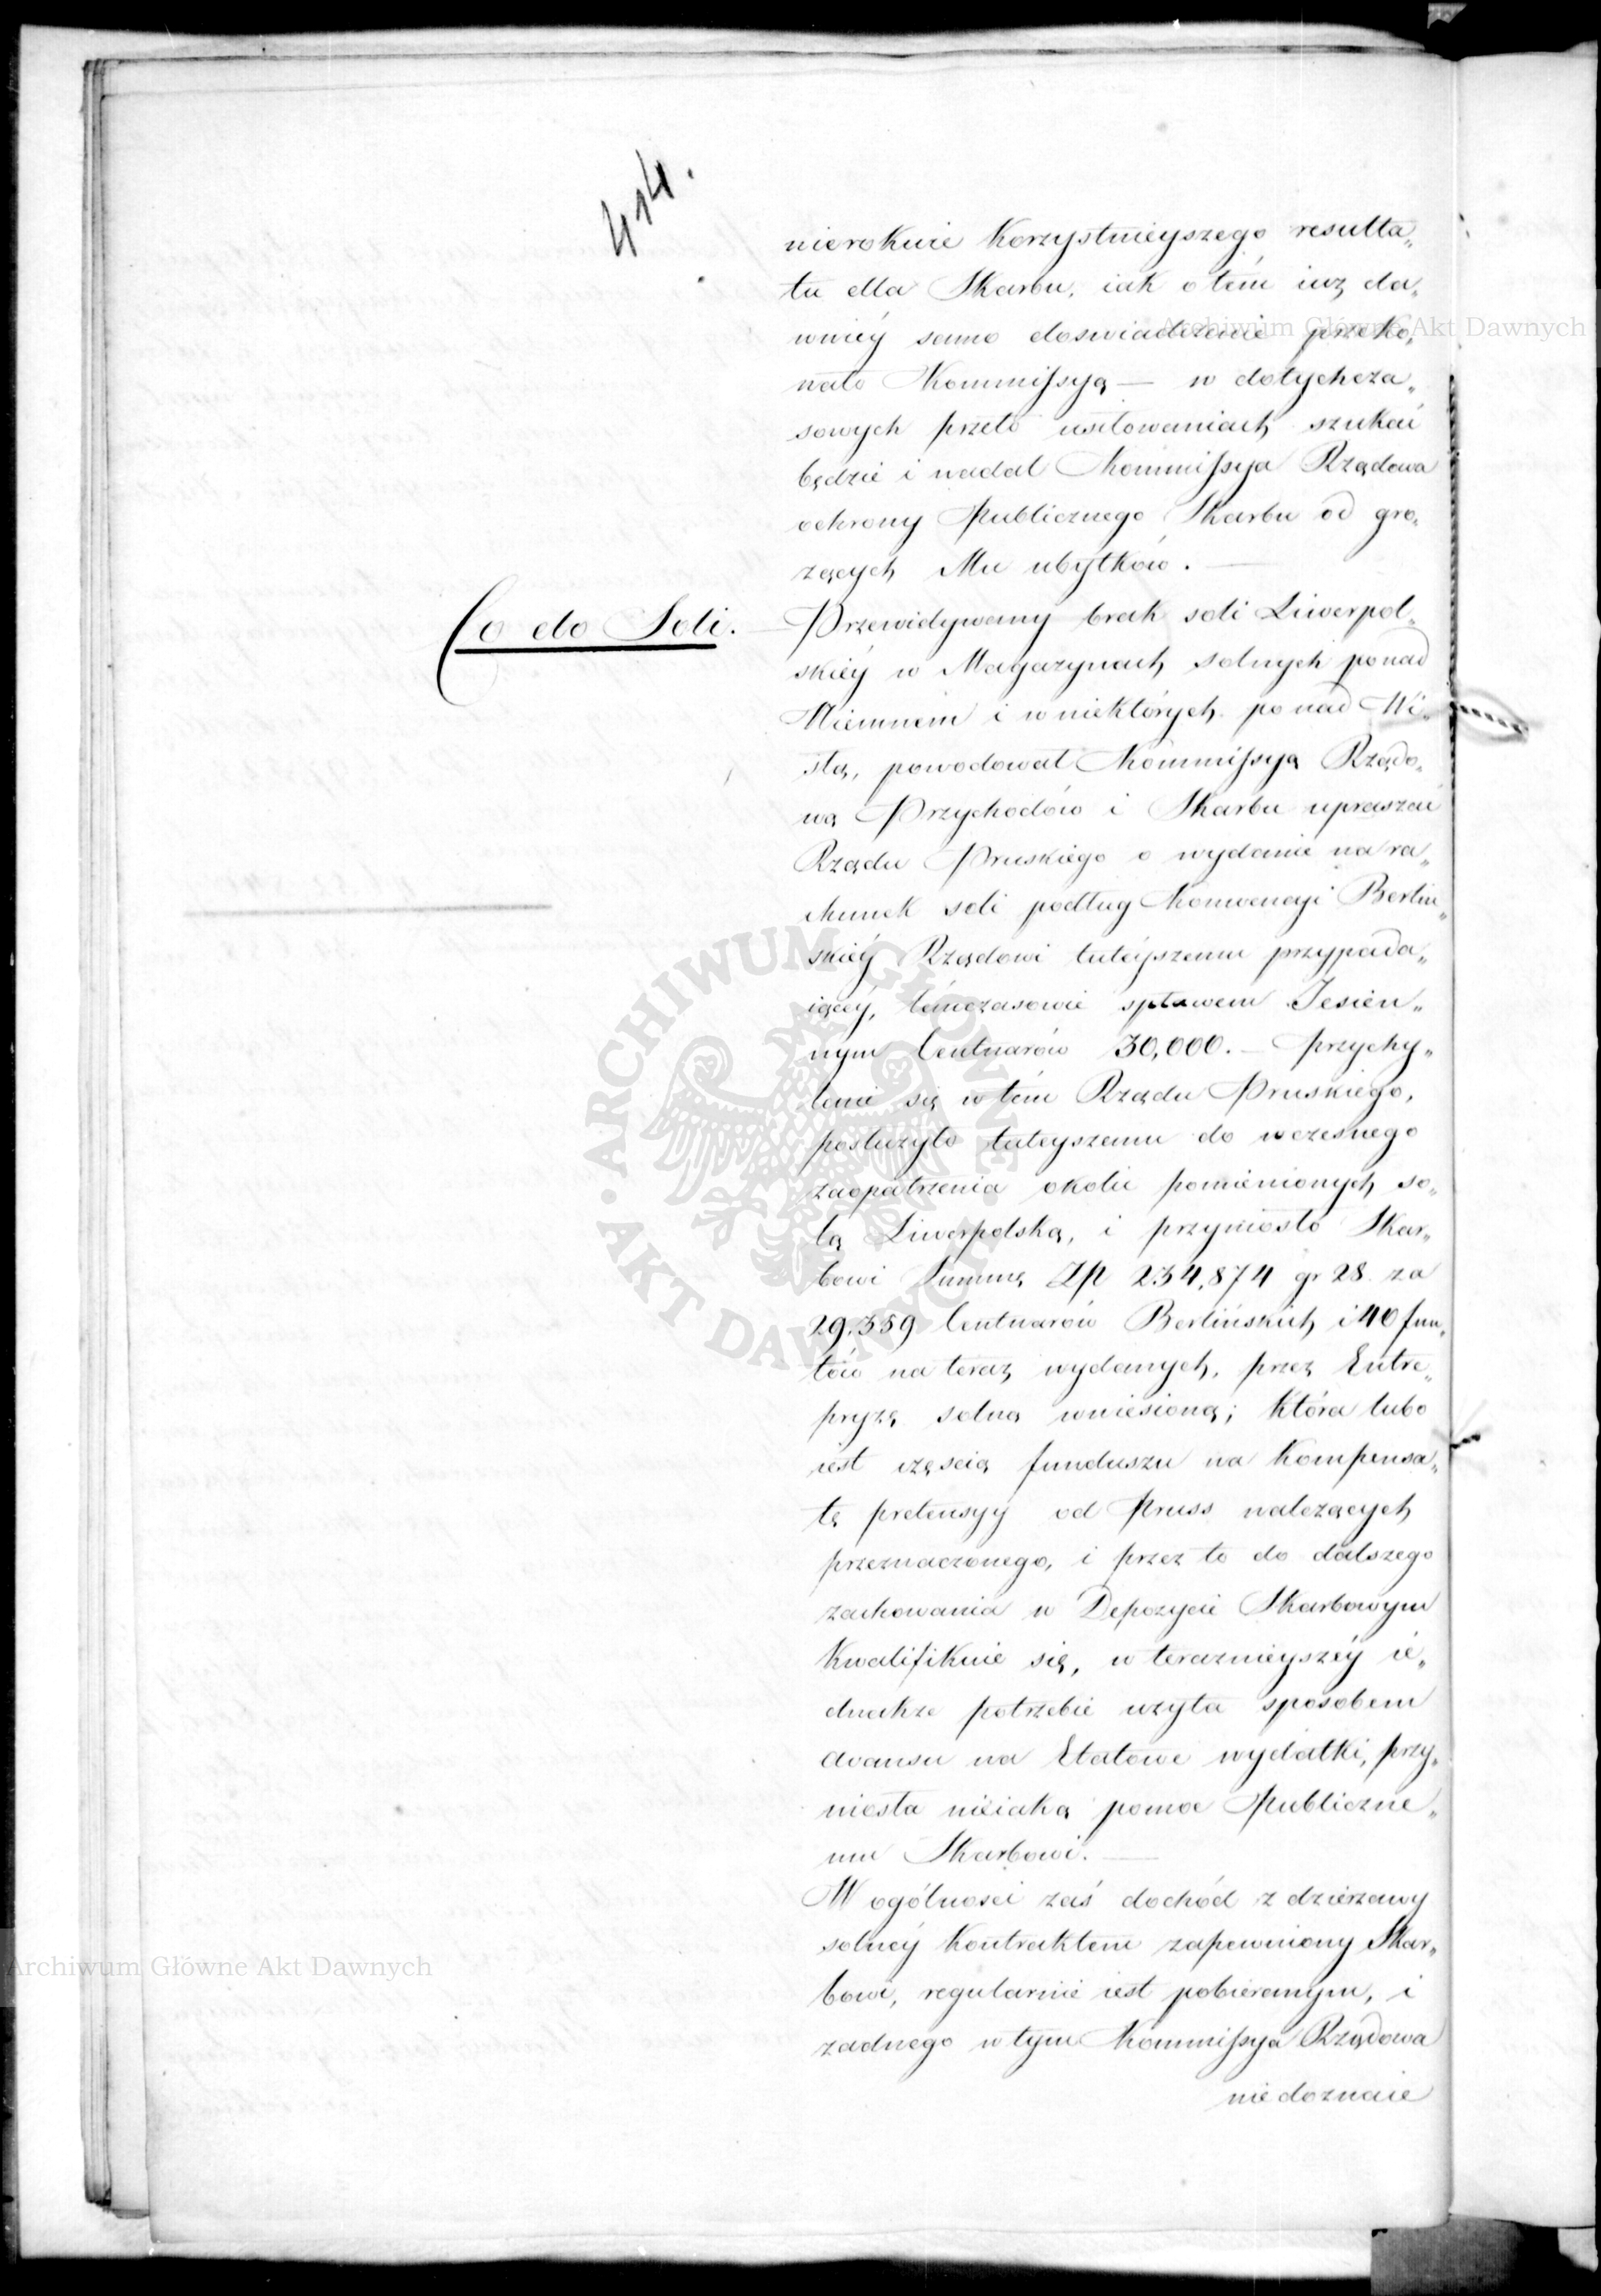 414.
nierokuie korzystnieyszego resulta„
tu dla Skarbu, iak o tém iuż da„
wniéy samo doswiadczenie przeko„
nało Kommissyą — w dotychcza„
sowych przeto usiłowaniach szukać
będzie i nadal Kommissya Rządowa
ochrony Publicznego Skarbu od gro„
żących Mu ubytków. —
Co do Soli. — Przewidywany brak soli Liwerpol„
skiéy w Magazynach solnych ponad
Niemnem i w niektórych ponad Wi„
słą, powodował Kommissyą Rządo„
wą Przychodów i Skarbu upraszać
Rządu Pruskiego o wydanie na ra„
chunek soli podług Konwencyi Berlin„
skiéy Rządowi tuteyszemu przypada„
iącéy, témczasowie spławem Jesien„
nym Centnarów 30,000. — Przychy„
lenie się w tém Rządu Pruskiego,
posłużyło tuteyszemu do wczesnego
zaopatrzenia okolic pomienionych so„
lą Liwerpolską, i przyniosło Skar„
bowi Summę Zł 234,874 gr 28. za
29,359 Centnarów Berlińskich i 40 fun„
tów na teraz wydanych, przez Entre„
pryzę solną wniesioną; która lubo
iest częscią funduszu na kompensa„
tę pretensyy od Pruss należących
przeznaczonego, i przez to do dalszego
zachowania w Depozycie Skarbowym
kwalifikuie się, w teraznieyszéy ie„
dnakże potrzebie użyta sposobem
avansu na Etatowe wydatki, przy„
niosła nieiaką pomoc Publiczne„
mu Skarbowi. —
W ogólnosci zaś dochód z dzierżawy
solnéy kontraktem zapewniony Skar„
bowi, regularnie iest pobieranym, i
żadnego w tym Kommissya Rządowa
nie doznaie
Archiwum Główne Akt Dawnych
Archiwum Główne Akt Dawnych
ARCHIWUM GŁÓWNE AKT DAWNYCH